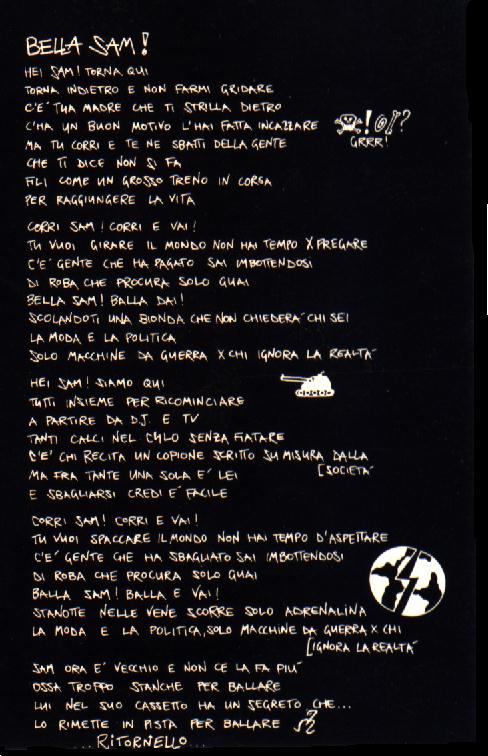 BELLA SAM!
HEI SAM! TORNA QUI
TORNA INDIETRO E NON FARMI GRIDARE
C'E' TUA MADRE CHE TI STRILLA DIETRO
C'HA UN BUON MOTIVO L'HAI FATTA INCAZZARE
MA TU CORRI E TE NE SBATTI DELLA GENTE
GRRR!
CHE TI DICE NON SI FA
FILI COME UN GROSSO TRENO IN CORSA
PER RAGGIUNGERE LA VITA
CORRI SAM! CORRI E VAI!
TU VUOI GIRARE IL MONDO NON HAI TEMPO X PREGARE
C'E' GENTE CHE HA PAGATO SAI IMBOTTENDOSI
DI ROBA CHE PROCURA SOLO GUAI
BELLA SAM! BALLA DAI!
SCOLANDOTI UNA BIONDA CHE NON CHIEDERA' CHI SEI
LA MODA E LA POLITICA
SOLO MACCHINE DA GUERRA X CHI IGNORA LA REALTA'
HEI SAM! SIAMO QUI
TUTTI INSIEME PER RICOMINCIARE
A PARTIRE DA D.J. E TV
TANTI CALCI NEL CULO SENZA FIATARE
C'E' CHI RECITA UN COPIONE SCRITTO SU MISURA DALLA
[SOCIETA'
MA FRA TANTE UNA SOLA E' LEI
E SBAGLIARSI CREDI E' FACILE
CORRI SAM! CORRI E VAI!
TU VUOI SPACCARE IL MONDO NON HAI TEMPO D'ASPETTARE
C'E' GENTE CHE HA SBAGLIATO SAI IMBOTTENDOSI
DI ROBA CHE PROCURA SOLO GUAI
BALLA SAM! BALLA E VAI!
STANOTTE NELLE VENE SCORRE SOLO ADRENALINA
LA MODA E LA POLITICA, SOLO MACCHINE DA GUERRA X CHI
[IGNORA LA REALTA'
SAM ORA E' VECCHIO E NON CE LA FA PIU'
OSSA TROPPO STANCHE PER BALLARE
LUI NEL SUO CASSETTO HA UN SEGRETO CHE...
LO RIMETTE IN PISTA PER BALLARE
...RITORNELLO...